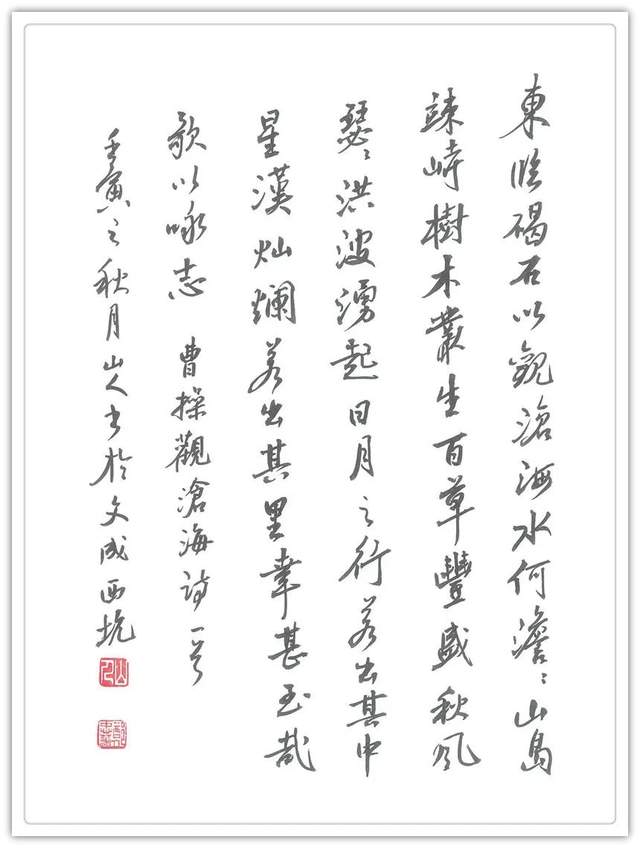 東臨碣石以觀滄海水何澹〻山島
竦峙樹木叢生百草豐盛秋風
瑟〻洪波湧起日月之行若出其中
星漢灿爛若出其里幸甚至哉
歌以咏志 曹操觀滄海詩一首
壬寅之秋月山人书於文成西坑
山人